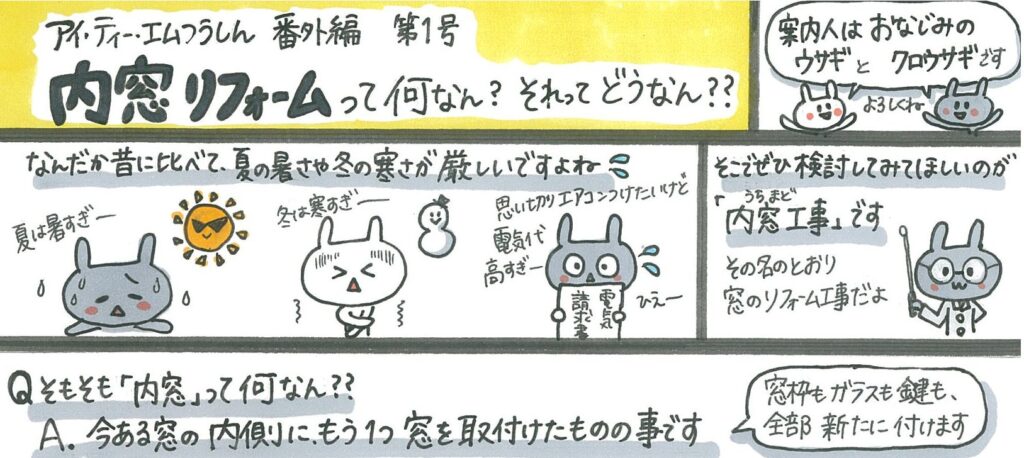 アイ・ティー・エムつうしん 番外編 第1号
内窓リフォームって何なん？それってどうなん？？
案内人は おなじみの
ウサギと クロウサギです
よろしくね
なんだか昔に比べて、夏の暑さや冬の寒さが厳しいですよね
夏は暑すぎー
冬は寒すぎー
思い切りエアコンつけたいけど
電気代
高すぎー
ひえー
電気
請求書
そこでぜひ検討してみてほしいのが
うちまど
「内窓工事」です
その名のとおり
窓のリフォーム工事だよ
Qそもそも「内窓」って何なん？？
A. 今ある窓の内側に、もう1つ窓を取付けたものの事です
窓枠もガラスも鍵も、
全部新たに付けます